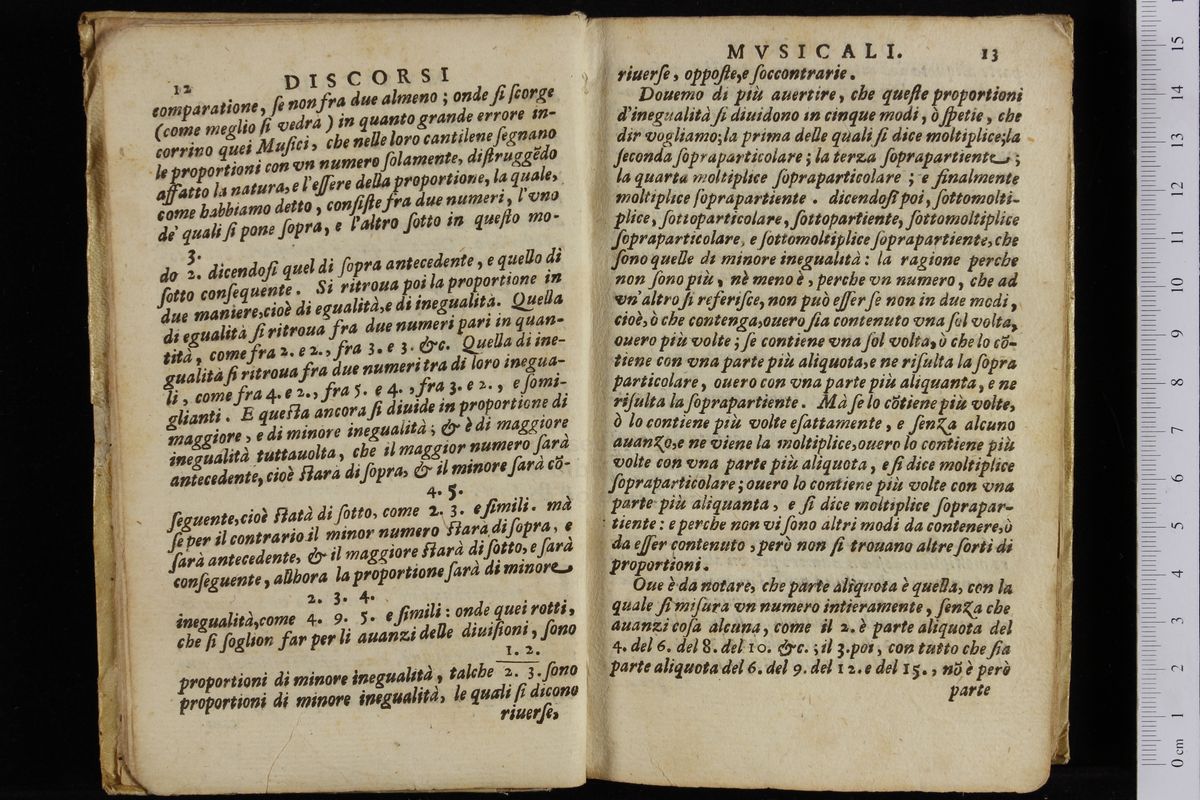 12 DISCORSI
comparatione, ſe non fra due almeno ; onde ſi ſcorge
(come meglio ſi vedrà ) in quanto grande errore in-
corrino quei Muſici, che nelle loro cantilene ſegnano
le proportioni con vn numero ſolamente, diſtruggẽdo
affatto la natura, e l'eſſere della proportione, la quale,
come habbiamo detto, conſiſte fra due numeri, l'vno
de' quali ſi pone ſopra, e l'altro ſotto in queſto mo-
3.
do 2. dicendoſi quel di ſopra antecedente, e quello di
ſotto conſequente. Si ritroua poi la proportione in
due maniere,cioè di egualità,e di inegualità. Quella
di egualità ſi ritroua fra due numeri pari in quan-
tità, come fra 2. e 2., fra 3. e 3. &c. Quella di ine-
gualità ſi ritroua fra due numeri tra di loro inegua-
li, come fra 4. e 2., fra 5. e 4. , fra 3. e 2., e ſomi-
glianti. E queſta ancora ſi diuide in proportione di
maggiore, e di minore inegualità; & è di maggiore
inegualità tuttauolta, che il maggior numero ſarà
antecedente, cioè ſtarà di ſopra, & il minore ſarà cõ-
4. 5.
ſeguente,cioè ſtatà di ſotto, come 2. 3. e ſimili. mà
ſe per il contrario il minor numero ſtarà di ſopra, e
ſarà antecedente, & il maggiore ſtarà di ſotto, e ſarà
conſeguente, allhora la proportione ſarà di minore
2. 3. 4.
inegualità,come 4. 9. 5. e ſimili : onde quei rotti,
che ſi ſoglion far per li auanzi delle diuiſioni, ſono
1. 2.
proportioni di minore inegualità, talche 2. 3. ſono
proportioni di minore inegualità, le quali ſi dicono
riuerſe,
MVSICALI. 13
riuerſe, oppoſte,e ſoccontrarie.
Douemo di più auertire, che queſte proportioni
d'inegualità ſi diuidono in cinque modi, ò ſpetie, che
dir vogliamo;la prima delle quali ſi dice moltiplice;la
ſeconda ſopraparticolare ; la terza ſoprapartiente ;
la quarta moltiplice ſopraparticolare ; e finalmente
moltiplice ſoprapartiente . dicendoſi poi, ſottomolti-
plice, ſottoparticolare, ſottopartiente, ſottomoltiplice
ſopraparticolare, e ſottomoltiplice ſoprapartiente,che
ſono quelle di minore inegualità : la ragione perche
non ſono più, nè meno è, perche vn numero, che ad
vn'altro ſi referiſce, non può eſſer ſe non in due modi,
cioè, ò che contenga,ouero ſia contenuto vna ſol volta,
ouero più volte ; ſe contiene vna ſol volta, ò che lo cõ-
tiene con vna parte più aliquota,e ne riſulta la ſopra
particolare, ouero con vna parte più aliquanta, e ne
riſulta la ſoprapartiente. Mà ſe lo cõtiene più volte,
ò lo contiene più volte eſattamente, e ſenza alcuno
auanzo,e ne viene la moltiplice,ouero lo contiene più
volte con vna parte più aliquota, e ſi dice moltiplice
ſopraparticolare ; ouero lo contiene più volte con vna
parte più aliquanta, e ſi dice moltiplice ſoprapar-
tiente : e perche non vi ſono altri modi da contenere,ò
da eſſer contenuto , però non ſi trouano altre ſorti di
proportioni.
Oue è da notare, che parte aliquota è quella, con la
quale ſi miſura vn numero intieramente, ſenza che
auanzi coſa alcuna, come il 2. è parte aliquota del
4. del 6. del 8. del 10. &c. ; il 3.poi, con tutto che ſia
parte aliquota del 6. del 9. del 12. e del 15., nõ è però
parte
0 cm 1 2 3 4 5 6 7 8 9 10 11 12 13 14 15